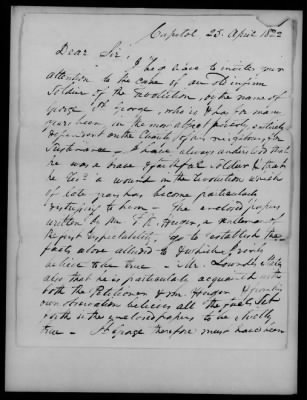 Capitol, 25. April 1822
Dear Sir,
I beg leave to invite your
attention to the case of an Infirm
Soldier of the Revolution, of the name of
George St George, who is & has for many
years been, in the most abject poverty, entirely
dependent on the Charity of his neighbours for
Sustenance - I have always understood that
he was a brave & faithful Soldier & that
he recd a wound in the Revolution which
of late years has become particularly
distressing to him - The enclosed papers
written by Mr. Huger, a gentleman of
the first respectability, go to establish the
facts above alluded to & which I verily
believe to be true - Mr. Lowndes States
also that he is particularly acquainted with
both the Petitioner & Mr. & from
own observation believes all the facts Set
forth in the enclosed papers to be strictly
true - St George therefore must have been